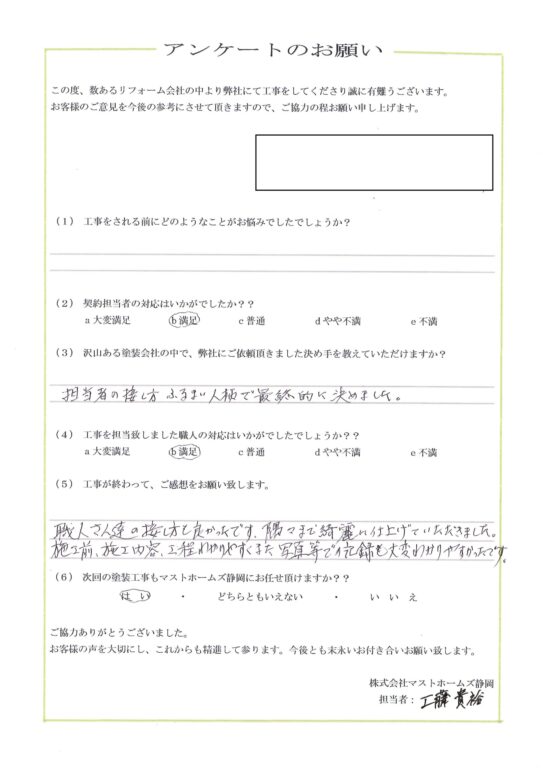 アンケートのお願い
この度、数あるリフォーム会社の中より弊社にて工事をしてくださり誠に有難うございます。
お客様のご意見を今後の参考にさせて頂きますので、ご協力の程お願い申し上げます。
(1) 工事をされる前にどのようなことがお悩みでしたでしょうか？
(2) 契約担当者の対応はいかがでしたか？？
a 大変満足 b 満足 c 普通 d やや不満 e 不満
(3) 沢山ある塗装会社の中で、弊社にご依頼頂きました決め手を教えていただけますか？
担当者の接し方 ふるまい人柄で最終的に決めました。
(4) 工事を担当致しました職人の対応はいかがでしたでしょうか？？
a 大変満足 b 満足 c 普通 d やや不満 e 不満
(5) 工事が終わって、ご感想をお願い致します。
職人さん達の接し方も良かったです、隅々まで綺麗に仕上げていただきました。
施工前、施工内容、工程わかりやすくまた写真等での記録も大変わかりやすかったです。
(6) 次回の塗装工事もマストホームズ静岡にお任せ頂けますか？？
はい ・ どちらともいえない ・ いいえ
ご協力ありがとうございました。
お客様の声を大切にし、これからも精進して参ります。今後とも末永いお付き合いお願い致します。
株式会社マストホームズ静岡
担当者：工藤 貴裕